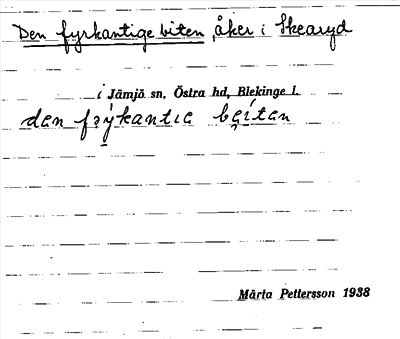 Den fyrkantige biten, åker i Skearyd
i Jämjö sn, Östra hd, Blekinge l.
den
Märta Pettersson 1938